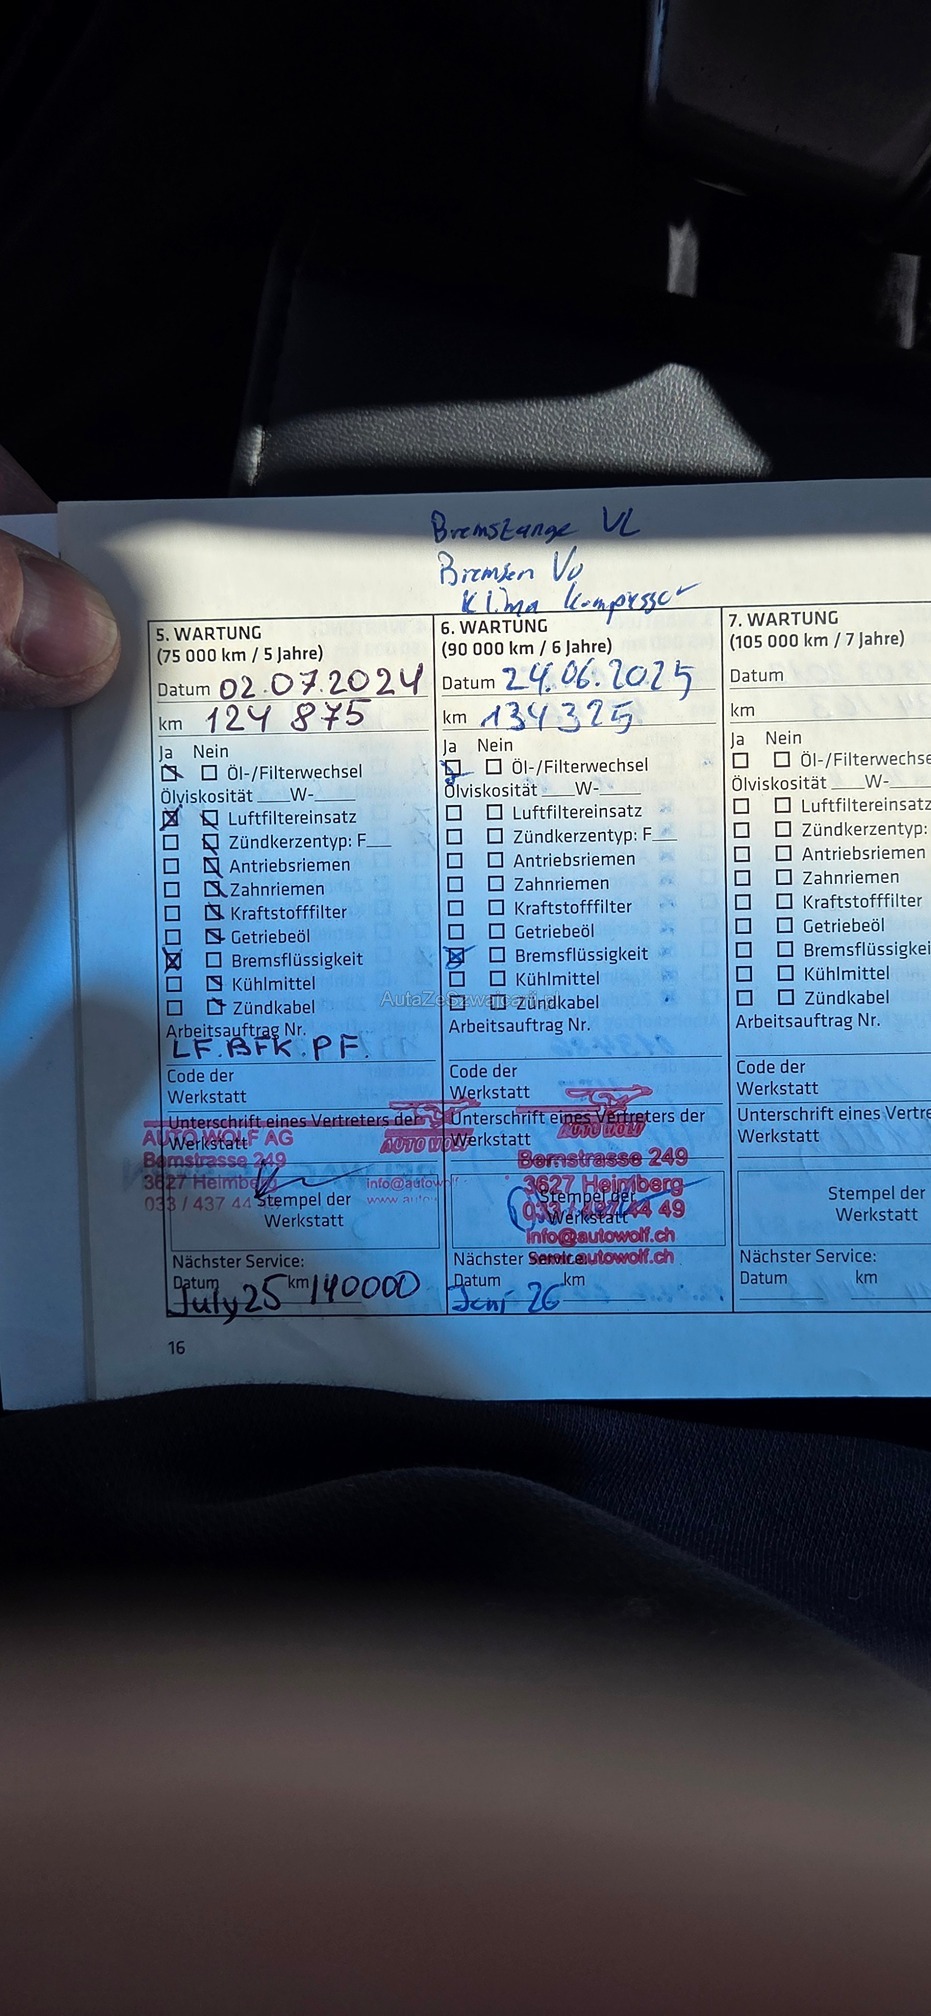 Bremszange VL
Bremsen Vo
Klima Kompressor
5. WARTUNG
(75 000 km / 5 Jahre)
Datum 02.07.2024
km 124 875
Ja Nein
Öl-/Filterwechsel
Ölviskosität ___W-____
Luftfiltereinsatz
Zündkerzentyp: F__
Antriebsriemen
Zahnriemen
Kraftstofffilter
Getriebeöl
Bremsflüssigkeit
Kühlmittel
Zündkabel
Arbeitsauftrag Nr.
LF. BFK. PF.
Code der
Werkstatt
Unterschrift eines Vertreters der
Werkstatt
AUTO WOLF AG
AUTO WOLF
Bernstrasse 249
3627 Heimberg
info@autowolf
033 / 437 44
www.auto
Stempel der
Werkstatt
Nächster Service:
Datum km
July 25 140000
6. WARTUNG
(90 000 km / 6 Jahre)
Datum 24.06.2025
km 134325
Ja Nein
Öl-/Filterwechsel
Ölviskosität ___W-____
Luftfiltereinsatz
Zündkerzentyp: F__
Antriebsriemen
Zahnriemen
Kraftstofffilter
Getriebeöl
Bremsflüssigkeit
Kühlmittel
Zündkabel
Arbeitsauftrag Nr.
Code der
Werkstatt
Unterschrift eines Vertreters der
Werkstatt
AUTO WOLF
Bernstrasse 249
3627 Heimberg
Stempel der
033 / 437 44 49
Werkstatt
info@autowolf.ch
Nächster Service:
www.autowolf.ch
Datum km
Juni 26
7. WARTUNG
(105 000 km / 7 Jahre)
Datum
km
Ja Nein
Öl-/Filterwechse
Ölviskosität ___W-
Luftfiltereinsatz
Zündkerzentyp:
Antriebsriemen
Zahnriemen
Kraftstofffilter
Getriebeöl
Bremsflüssigkei
Kühlmittel
Zündkabel
Arbeitsauftrag Nr.
Code der
Werkstatt
Unterschrift eines Vertre
Werkstatt
Stempel der
Werkstatt
Nächster Service:
Datum km
16